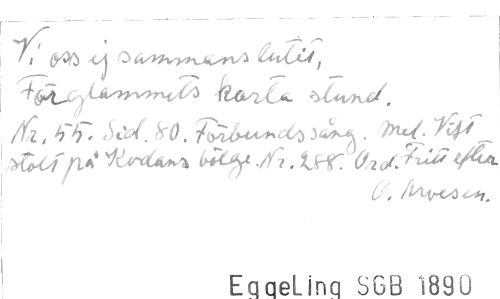 Vi oss ej sammanslutit,
För glammets korta stund.
Nr. 55. Sid. 80. Förbundssång. Mel. Vift
stolt på Kodans bölge. Nr. 288. Ord. Fritt efter
O. Arvesen.
EggeLing SGB 1890